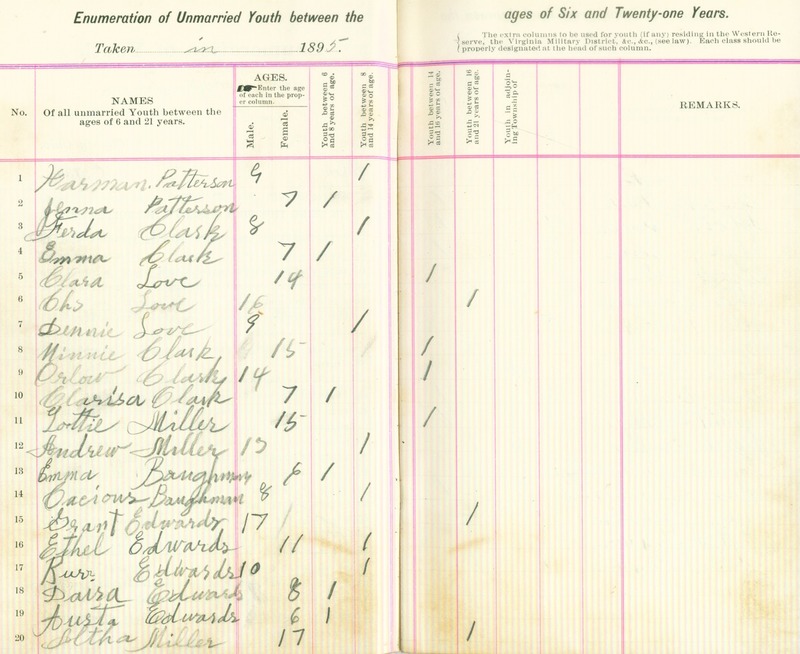 Enumeration of Unmarried Youth between the ages of Six and Twenty-one Years.
Taken in 1895.
The extra columns to be used for youth (if any) residing in the Western Re-
serve, the Virginia Military District, &c., &c., (see law). Each class should be
properly designated at the head of such column.
No.
NAMES
Of all unmarried Youth between the
ages of 6 and 21 years.
AGES.
Enter the age
of each in the prop-
er column.
Male.
Female.
Youth between 6
and 8 years of age.
Youth between 8
and 14 years of age.
Youth between 14
and 16 years of age.
Youth between 16
and 21 years of age.
Youth in adjoin-
ing Township of
REMARKS.
1 Harman Patterson 9 1
2 Jenna Patterson 7 1
3 Ferda Clark 8 1
4 Emma Clark 7 1
5 Clara Love 14 1
6 Chs Love 16 1
7 Dennie Love 9 1
8 Minnie Clark 15 1
9 Orlow Clark 14 1
10 Clarisa Clark 7 1
11 Lottie Miller 15 1
12 Andrew Miller 13 1
13 Emma Baughman 6 1
14 Cacious Baughman 8 1
15 Grant Edwards 17 1
16 Ethel Edwards 11 1
17 Burr Edwards 10 1
18 Daisa Edwards 8 1
19 Austa Edwards 6 1
20 Miller 17 1